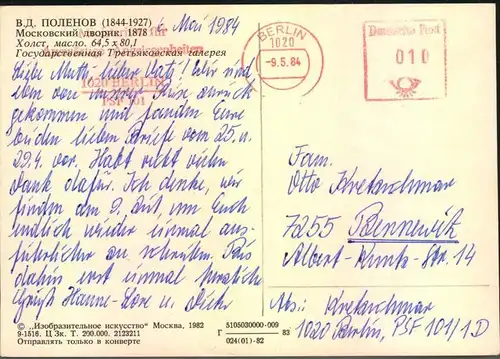 В.Д. ПОЛЕНОВ (1844-1927)
Московский дворик. 1878
Холст, масло. 64,5 x 80,1
Государственная Третьяковская галерея
6. Mai 1984
1020 BERLIN
PSF 101
Liebe Mutti, lieber Vati! Wir sind
eben von unserer Reise zurück
gekommen und fanden Eure
beiden lieben Briefe vom 25. u.
29.4. vor. Habt recht vielen
Dank dafür. Ich denke, wir
finden am 9. Zeit, um Euch
endlich wieder einmal aus-
führlicher zu schreiben. Bis
dahin erst einmal herzliche
Grüße Hanne-Lore u. Dieter
BERLIN
1020
-9.5.84
Deutsche Post
010
Fam.
Otto Kretzschmar
7255 Bennewitz
Albert-Kuntz-Str. 14
Abs.: Kretzschmar
1020 Berlin, PSF 101/1D
© „Изобразительное искусство" Москва, 1982
9-1516. Ц Зк. Т. 200.000. 2123211
Отправлять только в конверте
Г 5105030000-009 83
024(01)-82